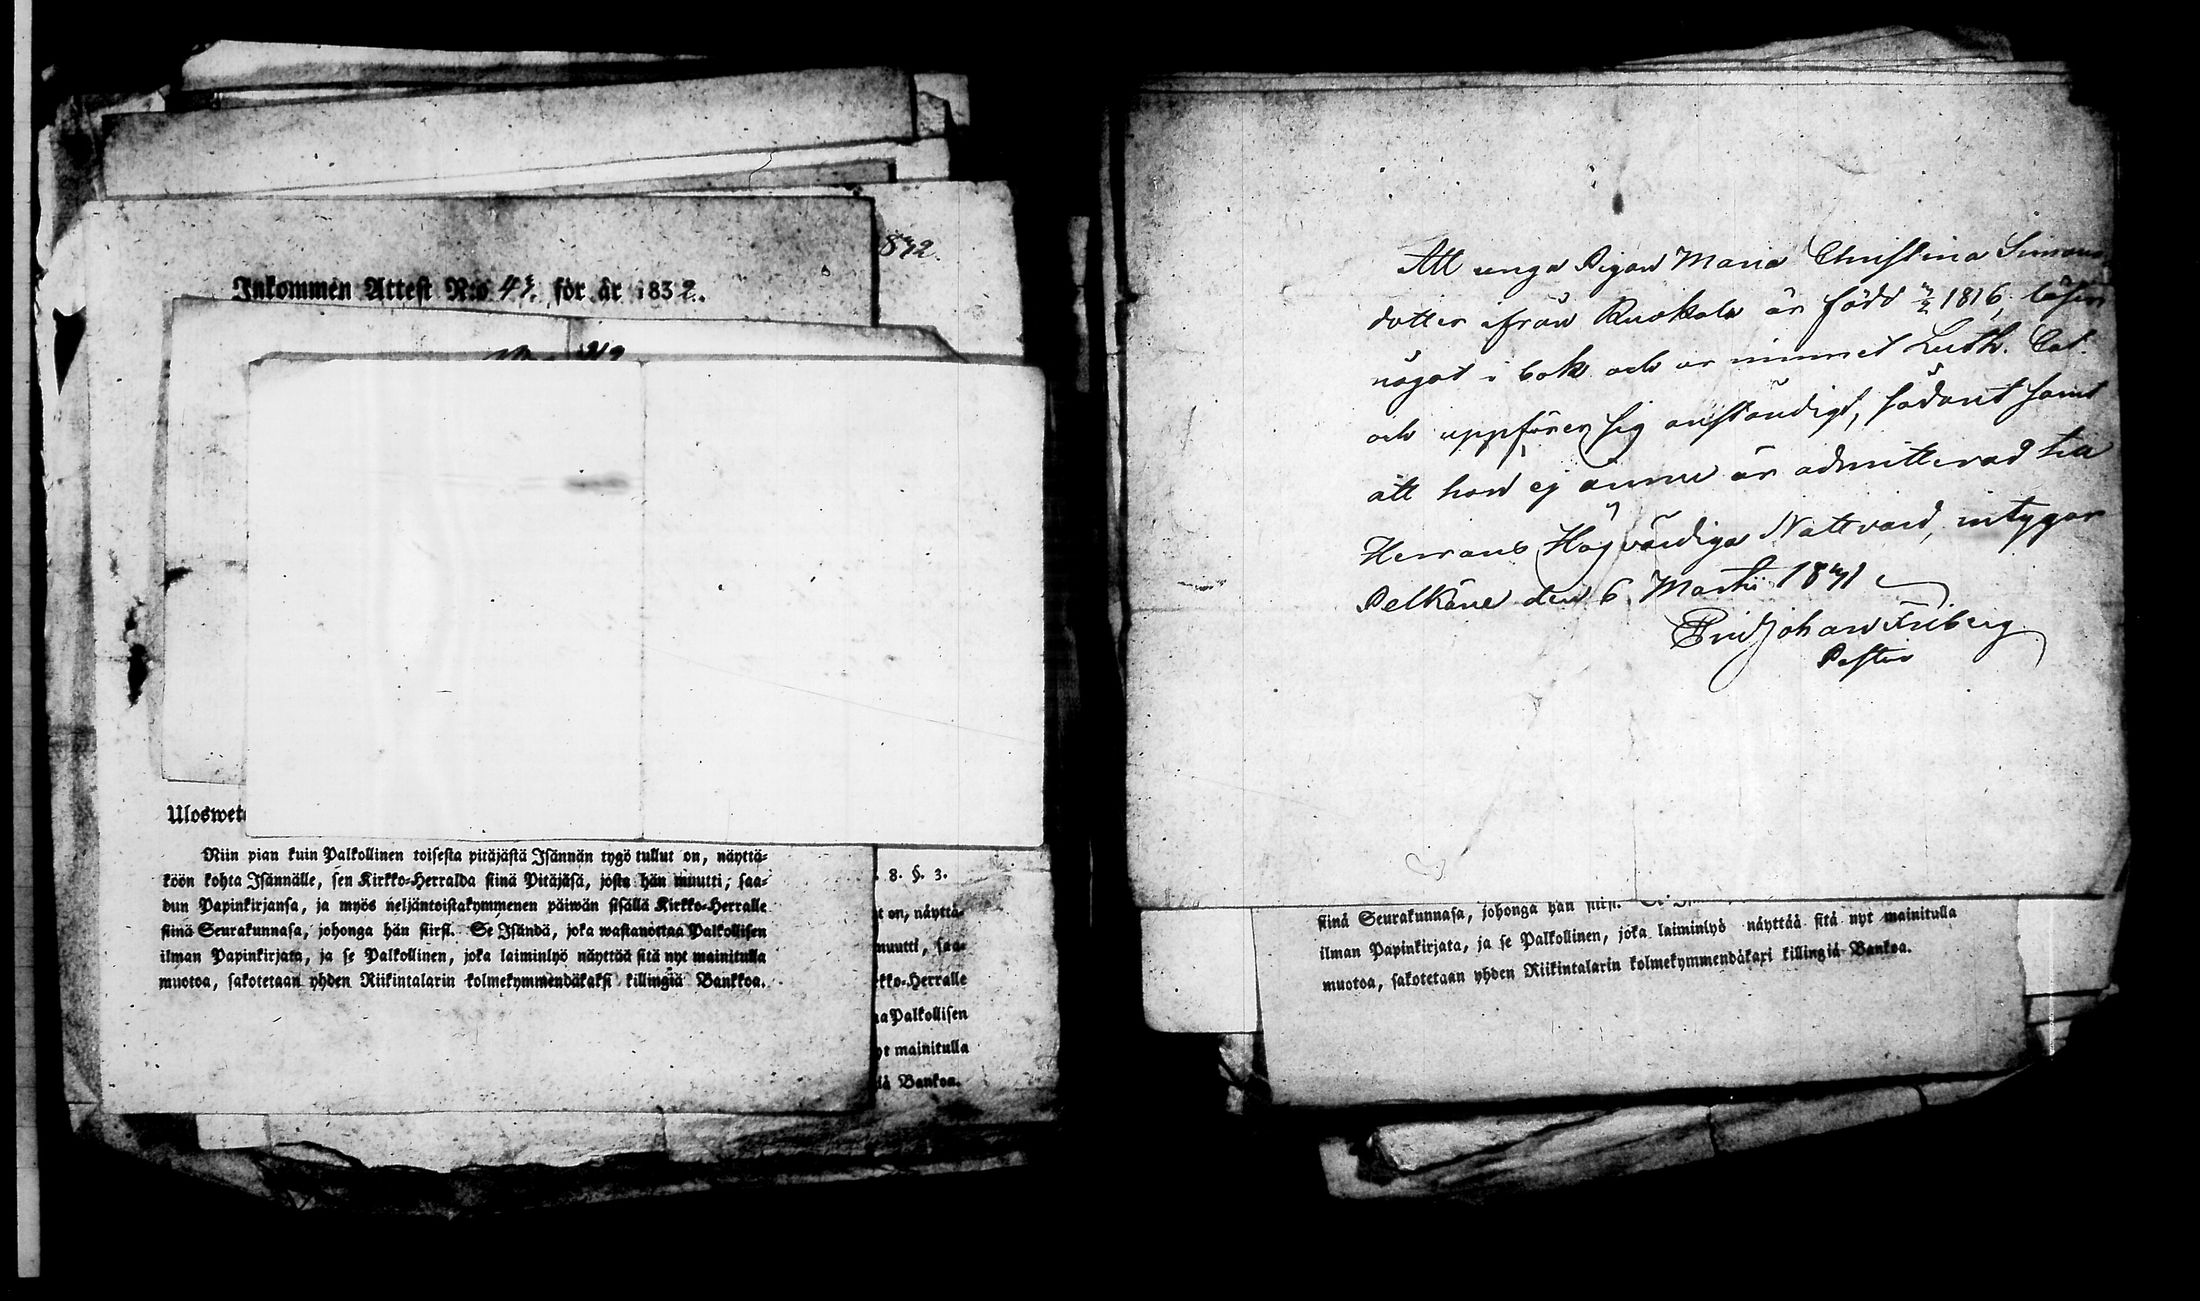 832.
Inkommen Attest N:o 43. för år 1832.
Uloswet
Niin pian kuin Palkollinen toisesta pitäjästä Isännän tygö tullut on, näyttä-
köön kohta Isännälle, sen Kirkko-Herralda siinä Pitäjäsä, josta hän muutti, saa-
dun Papinkirjansa, ja myös neljäntoistakymmenen päiwän sisällä Kirkko-Herralle
siinä Seurakunnasa, johonga hän siirsi. Se Isändä, joka wastanottaa Palkollisen
ilman Papinkirjata, ja se Palkollinen, joka laiminlyö näyttää sitä nyt mainitulla
muotoa, sakotetaan yhden Riikintalarin kolmekymmendäkaksi killingiä Bankkoa.
. 8. §. 3.
t on, näyttä-
muutti, saa-
rkko-Herralle
aa Palkollisen
yt mainitulla
iä Bankoa.
Att unga Pigan Maria Christina Simons
dotter ifrån Ruokola är född 1816, läser
något i bok och ur minnet Luth. Cat.
och uppförer sig anständigt, sådant samt
att hon ej ännu är admitterad till
Herrans Högvärdiga Nattvard, intygar
Pelkäne den 6 Martii 1831
Johan Friberg
Pastor
siinä Seurakunnasa, johonga hän siirsi. Se
ilman Papinkirjata, ja se Palkollinen, joka laiminlyö näyttää sitä nyt mainitulla
muotoa, sakotetaan yhden Riikintalarin kolmekymmendäkaxi killingiä Bankoa.